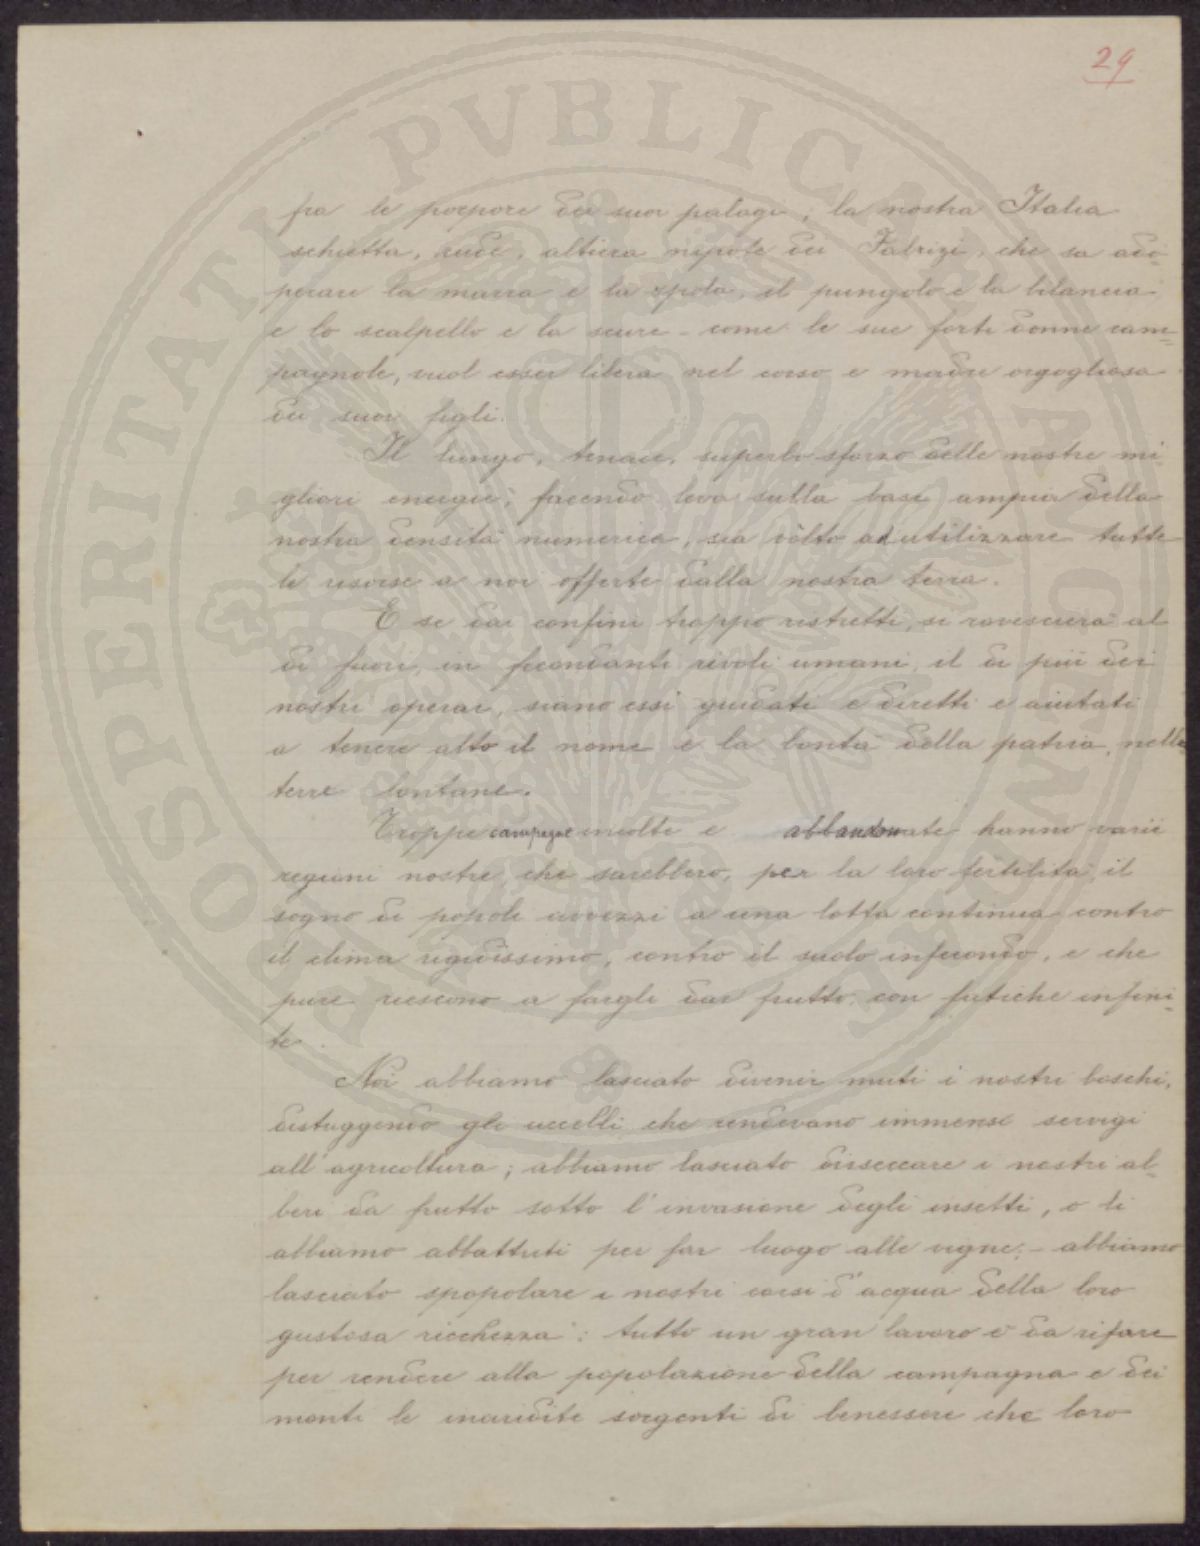 29
fra le porpore dei suoi palagi; la nostra Italia
schietta, rude, altiera nipote dei Fabrizi, che sa ado-
perare la marra e la spola, il pungolo e la bilancia
e lo scalpello e la scure - come le sue forti donne cam=
pagnole, vuol esser libera nel corso e madre orgogliosa
dei suoi figli.
Il lungo, tenace, superbo sforzo delle nostre mi-
gliori energie, facendo leva sulla base ampia della
nostra densità numerica, sia vòlto ad utilizzare tutte
le risorse a noi offerte dalla nostra terra.
E se dai confini troppo ristretti, si rovescierà al
di fuori, in fecondanti rivoli umani, il di più dei
nostri operai, siano essi guidati e diretti e aiutati
a tenere alto il nome e la bontà della patria, nelle
terre lontane.
Troppe campagne incolte e abbandonate hanno varie
regioni nostre, che sarebbero, per la loro fertilità, il
sogno di popoli avvezzi a una lotta continua contro
il clima rigidissimo, contro il suolo infecondo, e che
pure riescono a fargli dar frutto con fatiche infini=
te.
Noi abbiamo lasciato divenir muti i nostri boschi,
distuggendo gli uccelli che rendevano immensi servigi
all'agricoltura; abbiamo lasciato disseccare i nostri al-
beri da frutto sotto l'invasione degli insetti, o li
abbiamo abbattuti per far luogo alle vigne; - abbiamo
lasciato spopolare i nostri corsi d'acqua della loro
gustosa ricchezza: tutto un gran lavoro è da rifare
per rendere alla popolazione della campagna e dei
monti le inaridite sorgenti di benessere che loro